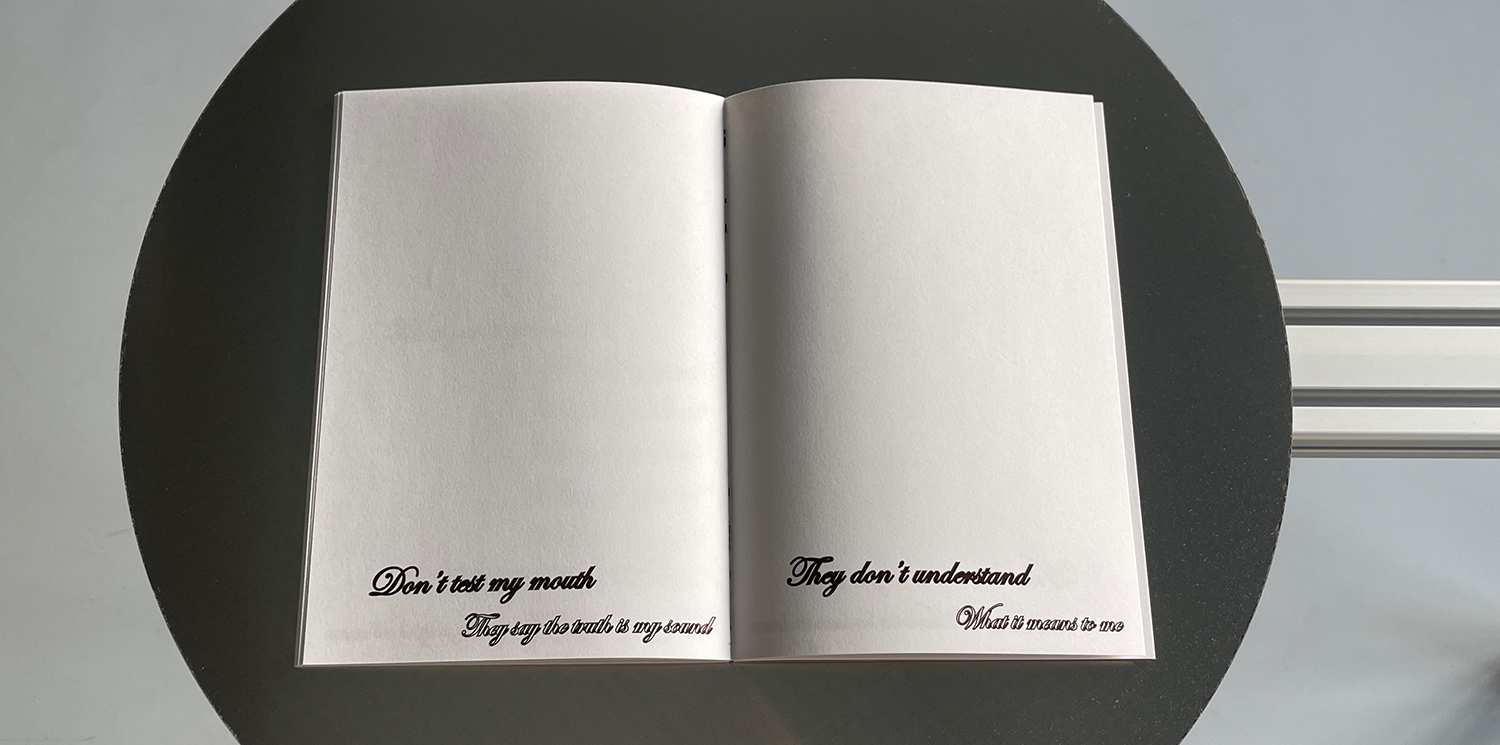 Don't test my mouth
They say the truth is my sound
They don't understand
What it means to me